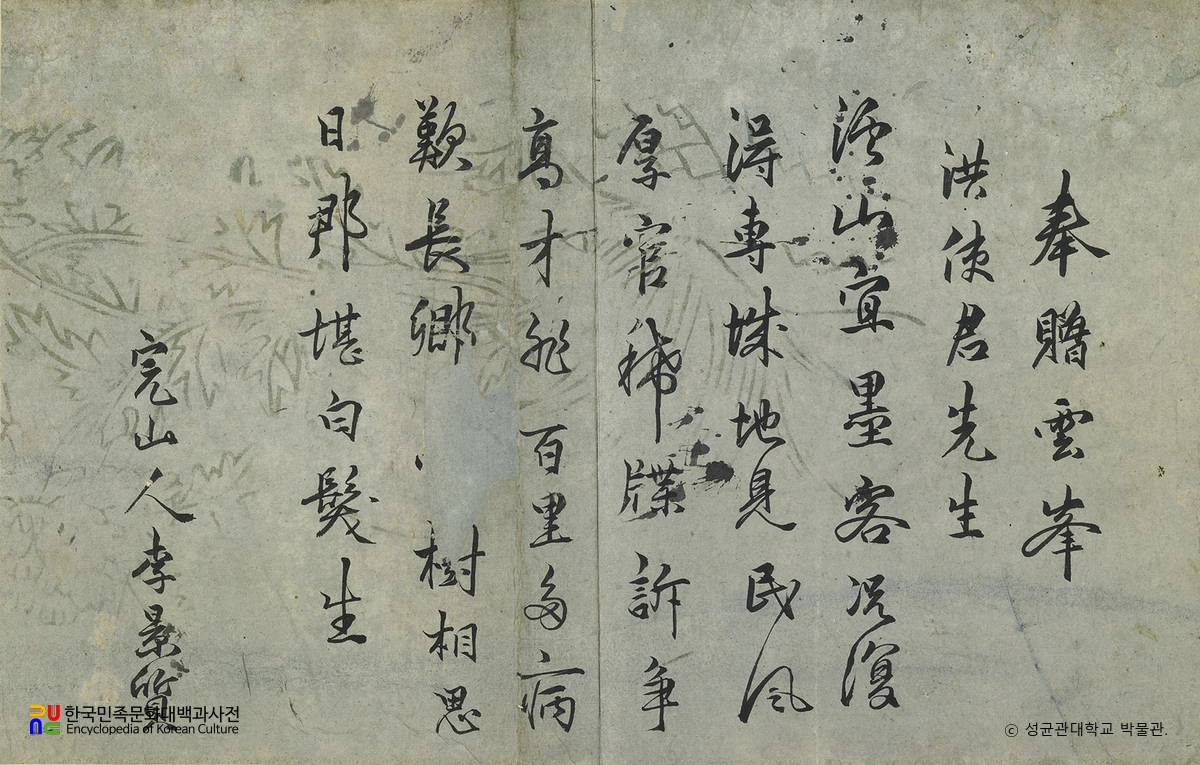 奉贈雲峯
洪使君先生
山宜墨客況復
得專城地見民風
厚官稀牒訴爭
高才非百里多病
歎長卿 樹相思
日那堪白髮生
完山人李景質
한국민족문화대백과사전
Encyclopedia of Korean Culture
ⓒ 성균관대학교 박물관.